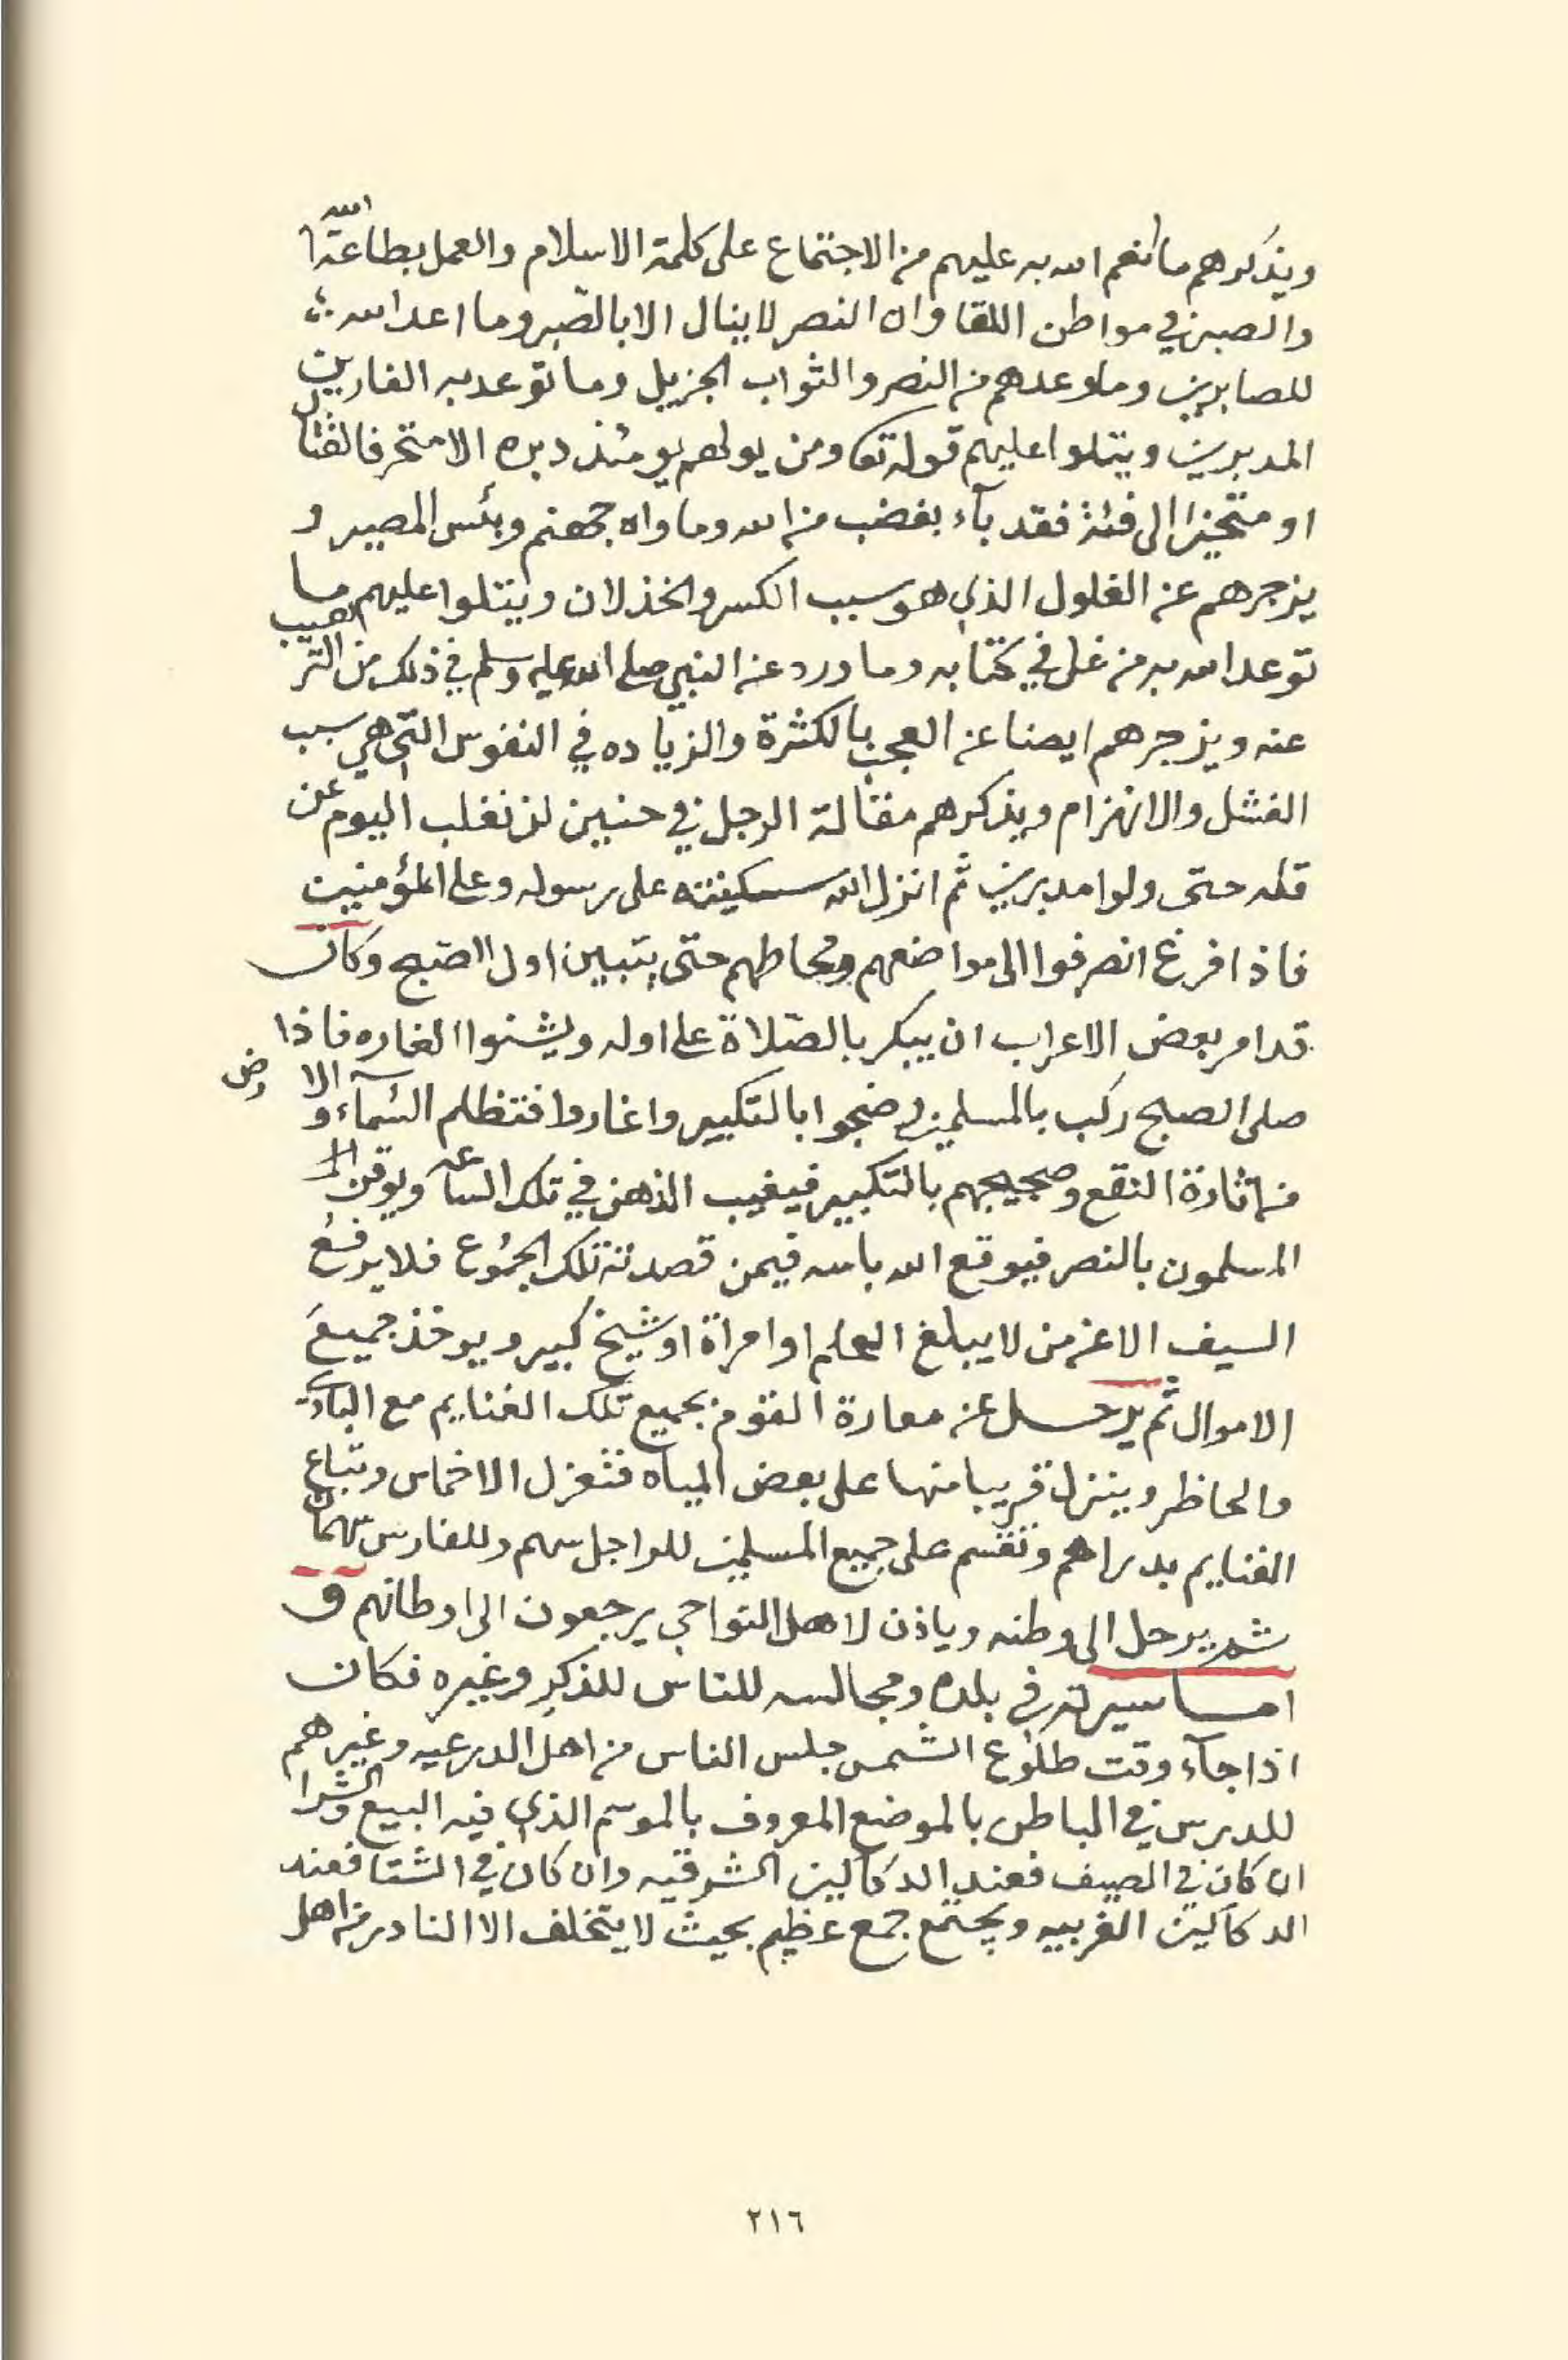 ويذكرهم ما انعم الله به عليهم من الاجتماع على كلمة الاسلام والعمل بطاعة الله
والصبر في مواطن اللقا وان النصر لا ينال الا بالصّبر وما اعد الله
للصابرين وما وعدهم من النصر والثواب الجزيل وما توعد به الفارين
المدبرين ويتلوا عليهم قوله تعا ومن يولهم يومئذ دبره الا متحرفا لقتال
او متحيزا الى فئة فقد بآء بغضب من الله وماواه جهنم وبئس المصير و
يزجرهم عن الغلول الذي هو سبب الكسر والخذلان ويتلوا عليهم ما
توعد الله به من غل في كتابه وما ورد عن النبي صلى الله عليه وسلم في ذلك من الترهيب
عنه ويزجرهم ايضا عن العجب بالكثرة والزياده في النفوس التي هي سبب
الفشل والانهزام ويذكرهم مقالة الرجل في حنين لن نغلب اليوم عن
قله حتى ولوا مدبرين ثم انزل الله سكينته على رسوله وعلى المؤمنين
فاذا افرغ انصرفوا الى مواضعهم ومحاطهم حتى يتبين اول الصّبح وكان
قد امر بعض الاعراب ان يبكر بالصّلاة على اوله ويشنوا الغاره فاذا
صلى الصبح ركب بالمسلمين وضجوا بالتكبير واغاروا فتظلم السّمآء والارض
من اثارة النقع وضجيجهم بالتكبير فيغيب الذهن في تلك الساعه ويوقن
المسلمون بالنصر فيوقع الله باسه فيمن قصدته تلك الجمُوع فلا يرفعُ
السيف الا عن من لا يبلغ الحلم او امراة او شيخ كبير ويوخذ جميعَ
الاموال ثم يرحل عن معارة القوم بجميع تلك الغنايم مع البادي
والحاظر وينزل قريبا منها على بعض المياه فتعزل الاخماس وتباع
الغنايم بدراهم وتقسم على جميع المسلمين للراجل سهم وللفارس سهمان
ثم يرحل الى وطنه وياذن لاهل النواحي يرجعون الى اوطانهم و
اما سيرته في بلده ومجالسه للناس للذكرِ وغيره فكان
اذا جآء وقت طلوع الشمس جلس الناس من اهل الدرعيه وغيرهم
للدرس في الباطن بالموضع المعروف بالموسم الذي فيه البيع والشرا
ان كان في الصيف فعند الدكاكين الشرقيه وان كان في الشتا فعند
الدكاكين الغربيه ويجتمع جمع عظيم بحيث لا يتخلف الا النادر من اهل
٢١٦